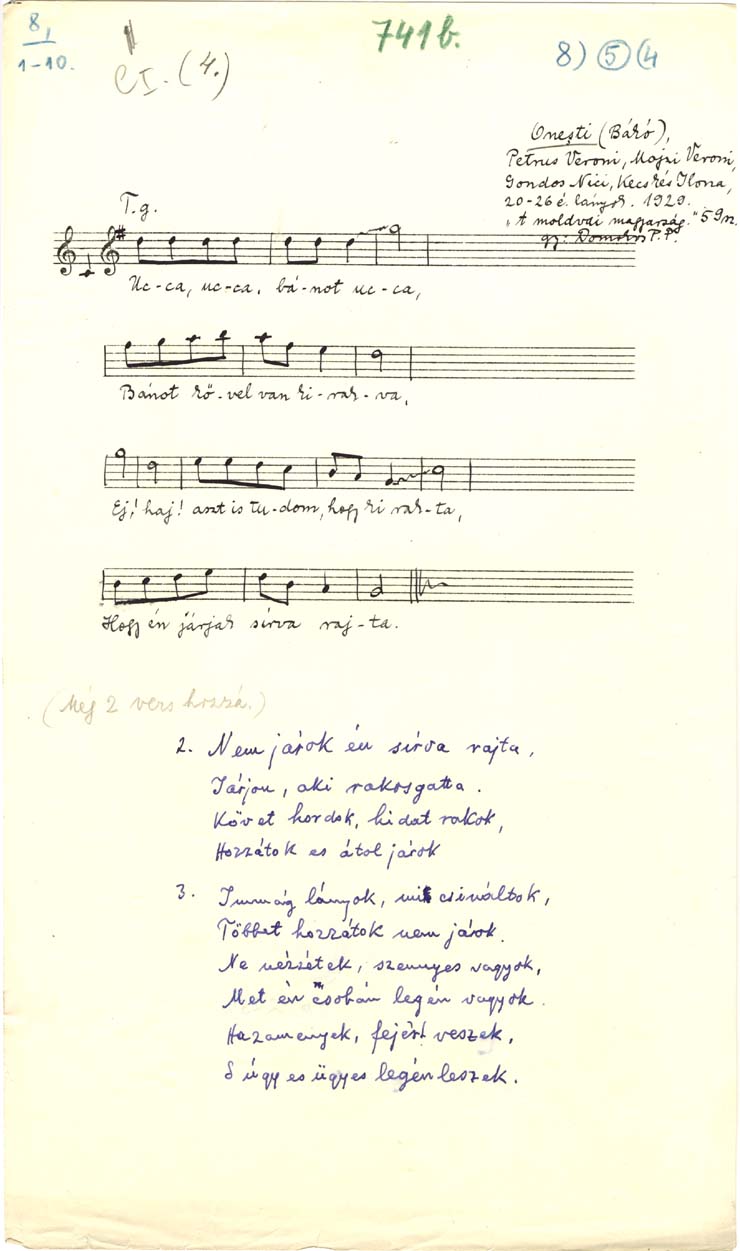 8/
1-10.
CI. (4.)
741b.
8) 5 (4
Onești (Bákó),
Petrus Veroni, Majzi Veroni,
Gondos Nici, Kecskés Ilona,
20-26 é. lányok. 1929.
"A moldvai magyarság." 59 sz.
gy: Domokos P.P.
T.g.
Uc-ca, uc-ca, bá-not uc-ca,
Bánot kő-vel van ki-rak-va,
Ej! haj! aszt is tu-dom, hogy ki rak-ta,
Hogy én járjak sírva raj-ta.
(Még 2 vers hozzá.)
2. Nem járok én sírva rajta,
Járjon, aki rakosgatta.
Követ hordok, hidat rakok,
Hozzátok es átol járok
3. Immág lányok, mit csináltok,
Többet hozzátok nem járok.
Ne nézzétek, szennyes vagyok,
Met én csobán legén vagyok.
Hazamenyek, fejért veszek,
S úgy es ügyes legén leszek.